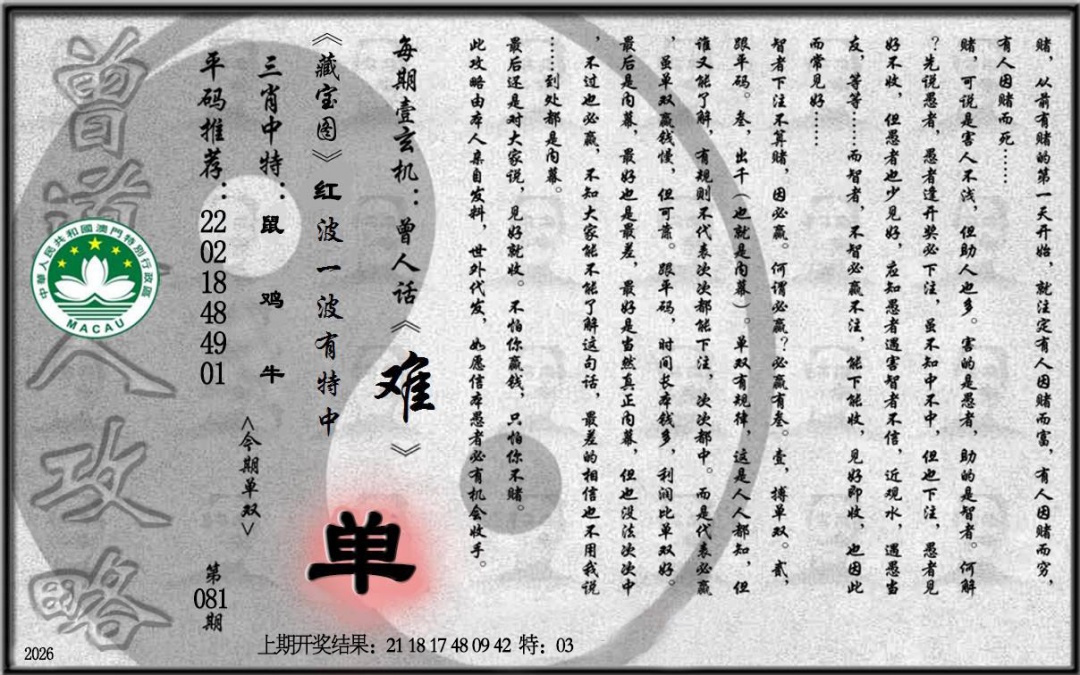 赌，从前有赌的第一天开始，就注定有人因赌而富，有人因赌而穷，
有人因赌而死……
赌，可说是害人不浅，但助人也多。害的是愚者，助的是智者。何解
？先说愚者，愚者逢开奖必下注，虽不知中不中，但也下注，愚者见
好不收，但愚者也少见好，应知愚者遇害智者不信，近观水，遇愚当
友，等等……而智者，不智必赢不注，能下能收，见好即收，也因此
而常见好……
智者下注不算赌，因必赢。何谓必赢？必赢有叁。壹，搏单双。贰，
跟平码。叁，出千（也就是内幕）。单双有规律，这是人人都知，但
谁又能了解，有规则不代表次次都能下注，次次都中。而是代表必赢
，虽单双赢钱慢，但可靠。跟平码，时间长本钱多，利润比单双好。
最后是内幕，最好也是最差，最好是当然真正内幕，但也没法次次中
，不过也必赢，不知大家能不能了解这句话，最差的相信也不用我说
……到处都是内幕。
最后还是对大家说，见好就收。不怕你赢钱，只怕你不赌。
此攻略由本人亲自发料，世外代发，如愿信本愚者必有机会收手。
每期壹玄机：曾人话《难》
《藏宝图》红波一波有特中
单
三肖中特：鼠鸡牛
<今期单双>
平码推荐：22 02 18 48 49 01
第081期
曾道人攻略
中華人民共和國澳門特別行政區
MACAU
上期开奖结果：21 18 17 48 09 42 特：03
2026